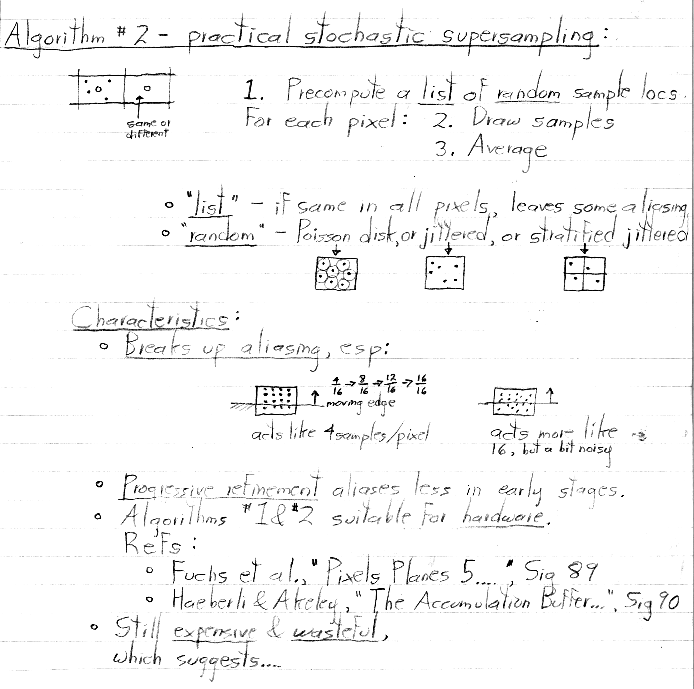 Algorithm #2 - practical stochastic supersampling:
1. Precompute a list of random sample locs.
same or
different
For each pixel: 2. Draw samples
3. Average
"list" - if same in all pixels, leaves some aliasing
"random" - Poisson disk, or jittered, or stratified jittered
Characteristics:
Breaks up aliasing, esp:
4/16 → 8/16 → 12/16 → 16/16
moving edge
acts like 4 samples/pixel
acts mor- like
16, but a bit noisy
Progressive refinement aliases less in early stages.
Algorithms #1 & #2 suitable for hardware.
Refs:
Fuchs et al., "Pixels Planes 5....", Sig 89
Haeberli & Akeley, "The Accumulation Buffer...", Sig 90
Still expensive & wasteful,
which suggests....